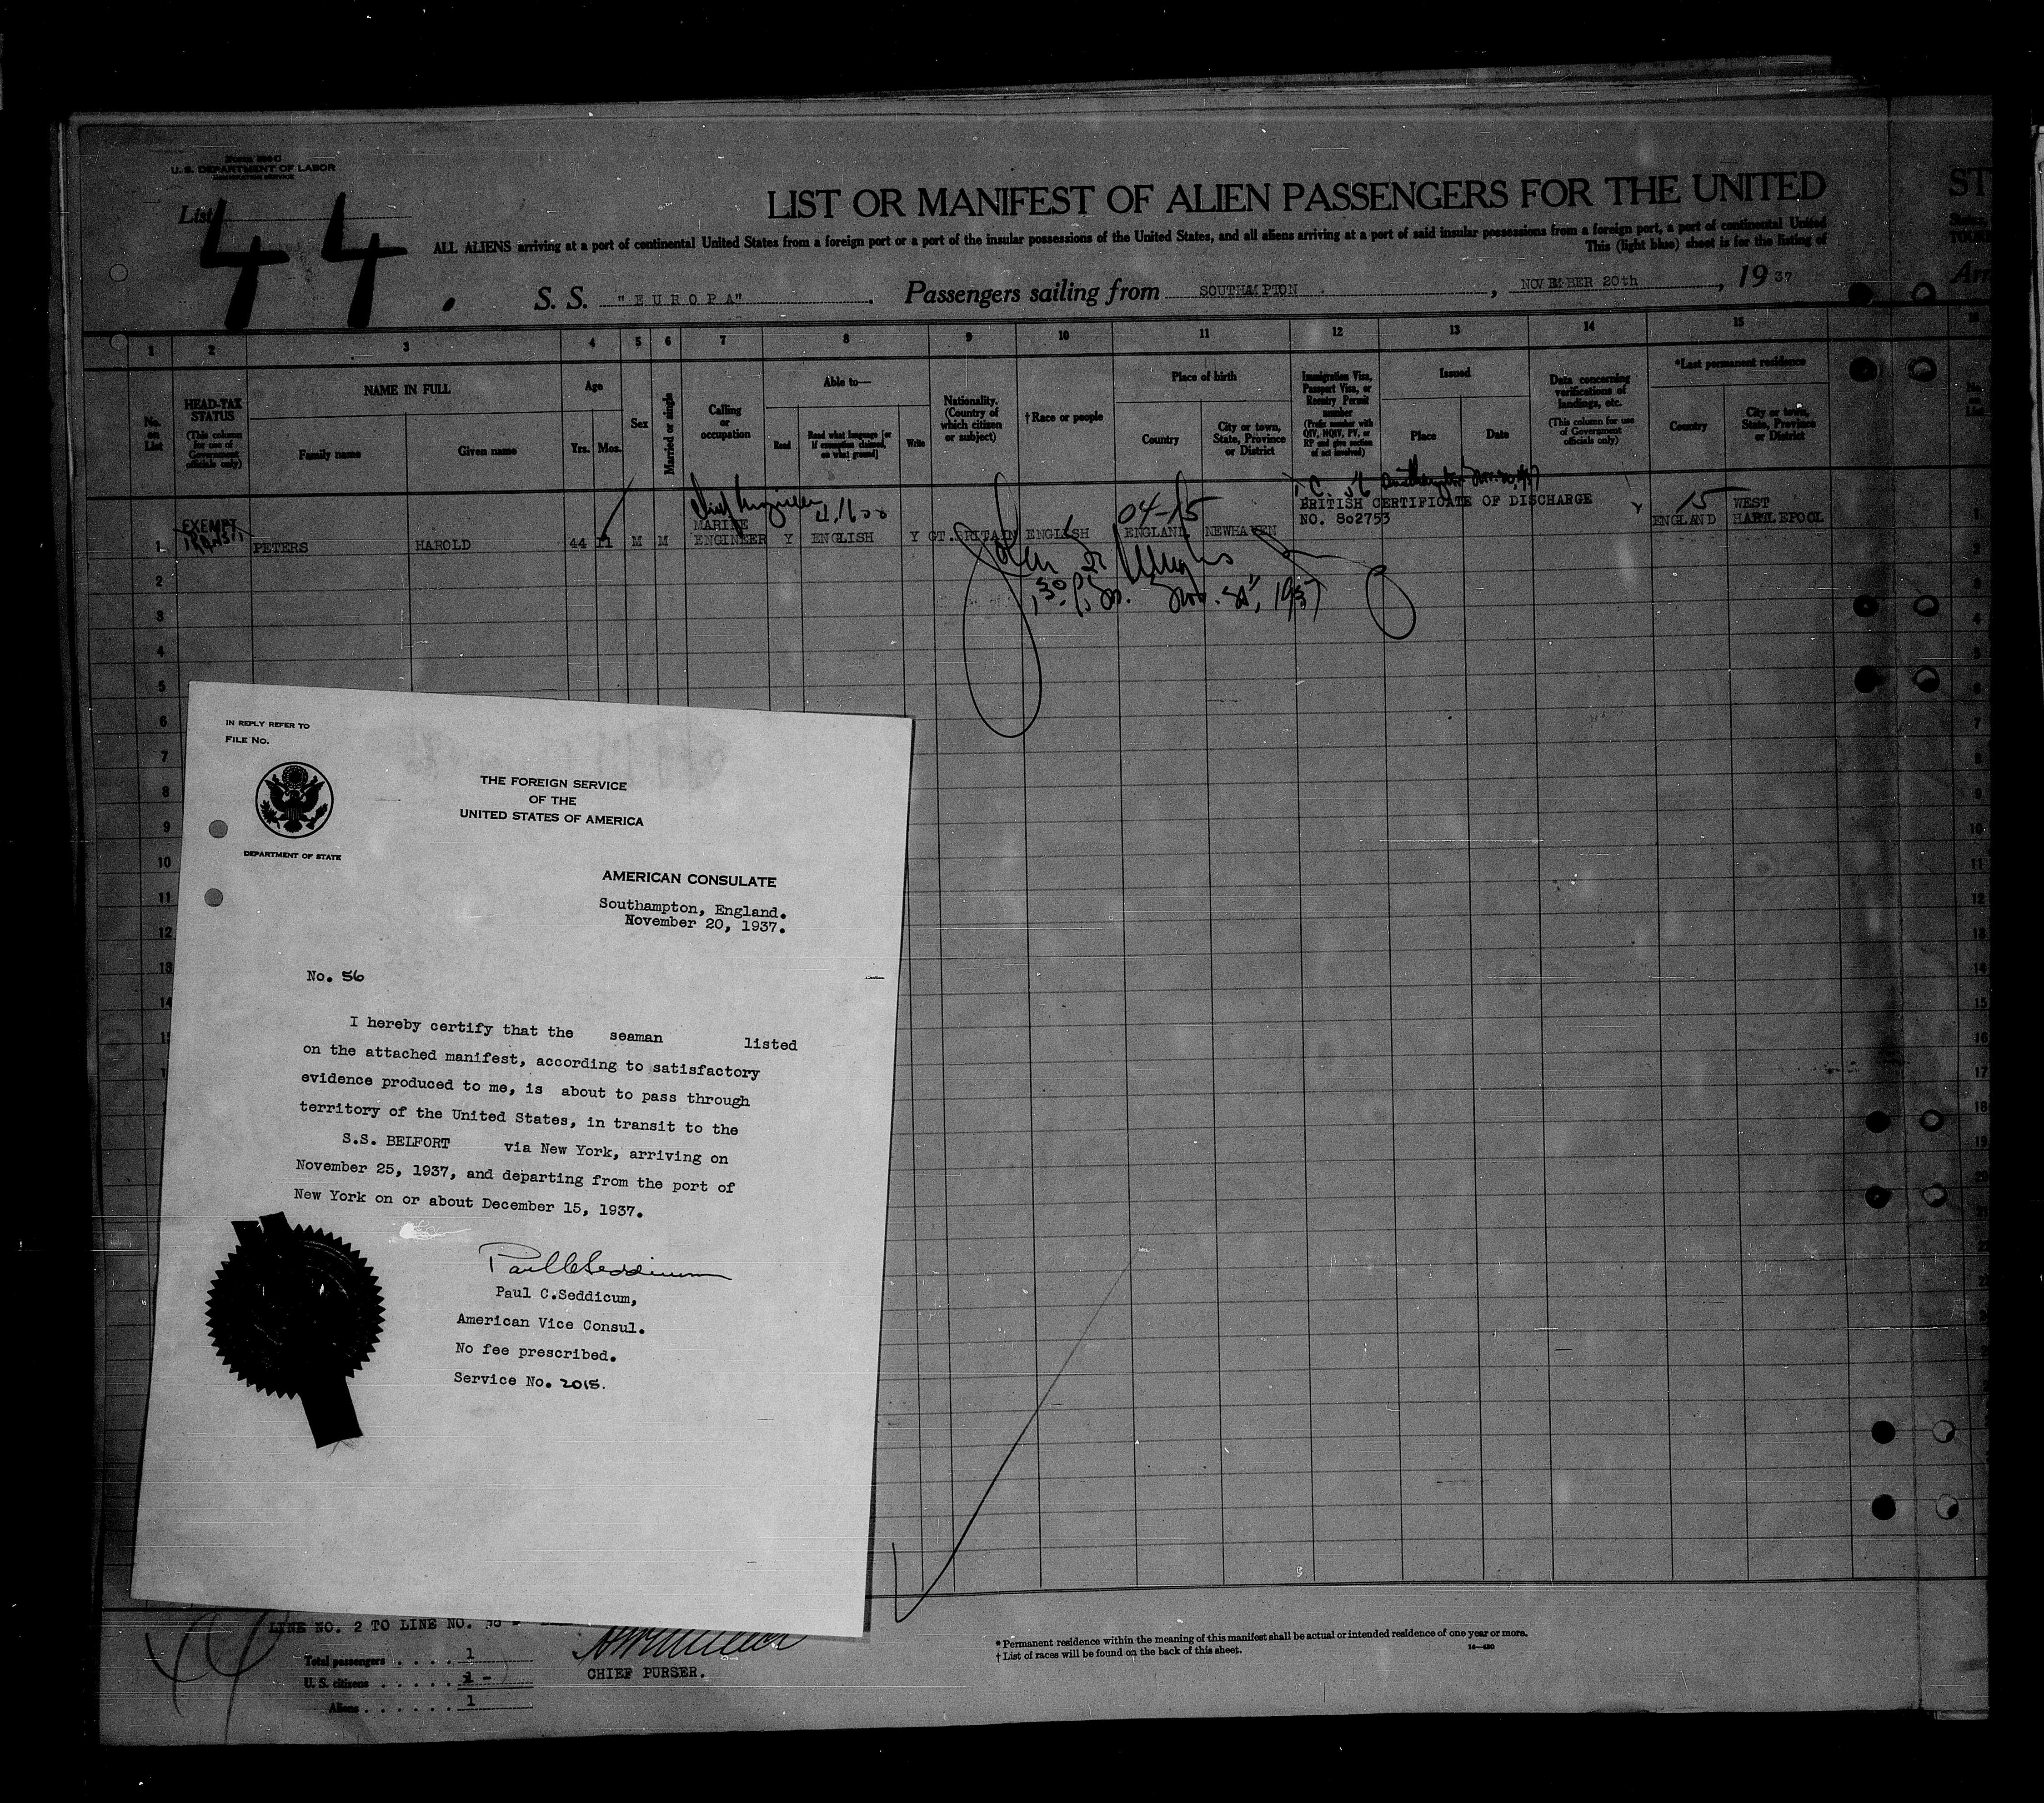 Form 500 C
U. S. DEPARTMENT OF LABOR
IMMIGRATION SERVICE
List 44.
LIST OR MANIFEST OF ALIEN PASSENGERS FOR THE UNITED
ST
ALL ALIENS arriving at a port of continental United States from a foreign port or a port of the insular possessions of the United States, and all aliens arriving at a port of said insular possessions from a foreign port, a port of continental United
This (light blue) sheet is for the listing of
S. S. "EUROPA". Passengers sailing from SOUTHAMPTON, NOVEMBER 20th, 19 37
1 2 3 4 5 6 7 8 9 10 11 12 13 14 15
No. on List
HEAD-TAX STATUS (This column for use of Government officials only)
NAME IN FULL
Family name
Given name
Age
Yrs. Mos.
Sex
Married or single
Calling or occupation
Able to—
Read
Read what language [or if exemption claimed, on what ground]
Write
Nationality. (Country of which citizen or subject)
† Race or people
Place of birth
Country
City or town, State, Province or District
Immigration Visa, Passport Visa, or Reentry Permit number (Prefix number with QIV, NQIV, PV, or RP and give section of act involved)
Issued
Place
Date
Data concerning verifications of landings, etc. (This column for use of Government officials only)
*Last permanent residence
Country
City or town, State, Province or District
Chief Engineer
04-15
15
EXEMPT
TRANSIT
1 PETERS HAROLD 44 11 M M MARINE ENGINEER Y ENGLISH Y GT.BRITAIN ENGLISH ENGLAND NEWHAVEN
BRITISH CERTIFICATE OF DISCHARGE
NO. 802753
ENGLAND WEST HARTLEPOOL
2
3
4
5
6
7
8
9
10
11
12
13
14
IN REPLY REFER TO
FILE NO.
DEPARTMENT OF STATE
THE FOREIGN SERVICE
OF THE
UNITED STATES OF AMERICA
AMERICAN CONSULATE
Southampton, England.
November 20, 1937.
No. 56
I hereby certify that the seaman listed
on the attached manifest, according to satisfactory
evidence produced to me, is about to pass through
territory of the United States, in transit to the
S.S. BELFORT via New York, arriving on
November 25, 1937, and departing from the port of
New York on or about December 15, 1937.
Paul C Seddicum
Paul C.Seddicum,
American Vice Consul.
No fee prescribed.
Service No. 2015.
LINE NO. 2 TO LINE NO. 30 -
Total passengers . . . . 1
U. S. citizens . . . . . . 1 -
Aliens . . . . . . 1
CHIEF PURSER.
* Permanent residence within the meaning of this manifest shall be actual or intended residence of one year or more.
† List of races will be found on the back of this sheet.
14—430